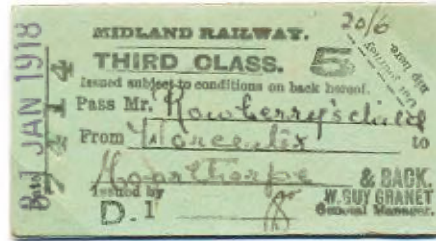 MIDLAND RAILWAY.
20/6
THIRD CLASS.
5
Issued subject to conditions on back hereof.
Pass Mr. Rowberry's child
From Worcester to
Moorthorpe & BACK.
Issued by
D.1
W. GUY GRANET
General Manager.
JAN 1918
Out journey